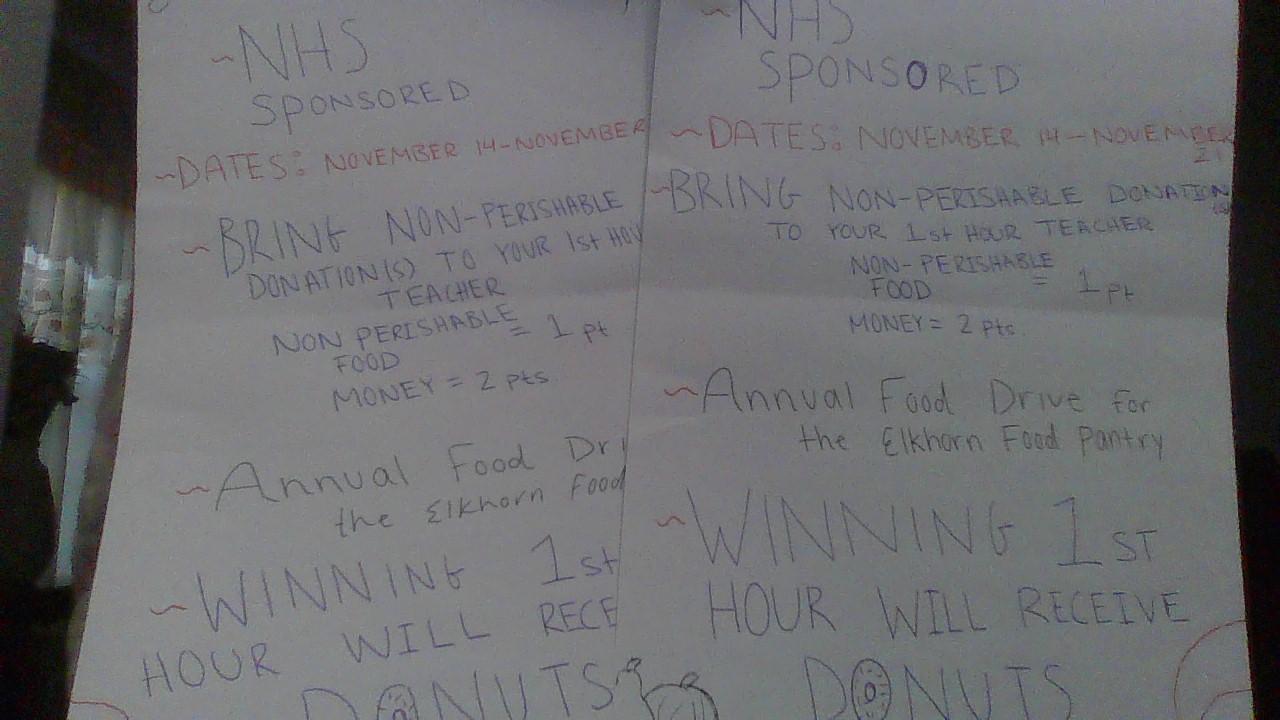 ~NHS
SPONSORED
~DATES: NOVEMBER 14-NOVEMBER
~BRING NON-PERISHABLE
DONATION(S) TO YOUR 1st HOU
TEACHER
NON PERISHABLE = 1 pt
FOOD
MONEY = 2 pts
~Annual Food Dri
the Elkhorn Food
~WINNING 1st
HOUR WILL RECE
DONUTS
~NHS
SPONSORED
~DATES: NOVEMBER 14-NOVEMBER
21
~BRING NON-PERISHABLE DONATION
(S)
TO YOUR 1st HOUR TEACHER
NON-PERISHABLE = 1 pt
FOOD
MONEY = 2 pts
~Annual Food Drive for
the Elkhorn Food Pantry
~WINNING 1ST
HOUR WILL RECEIVE
DONUTS